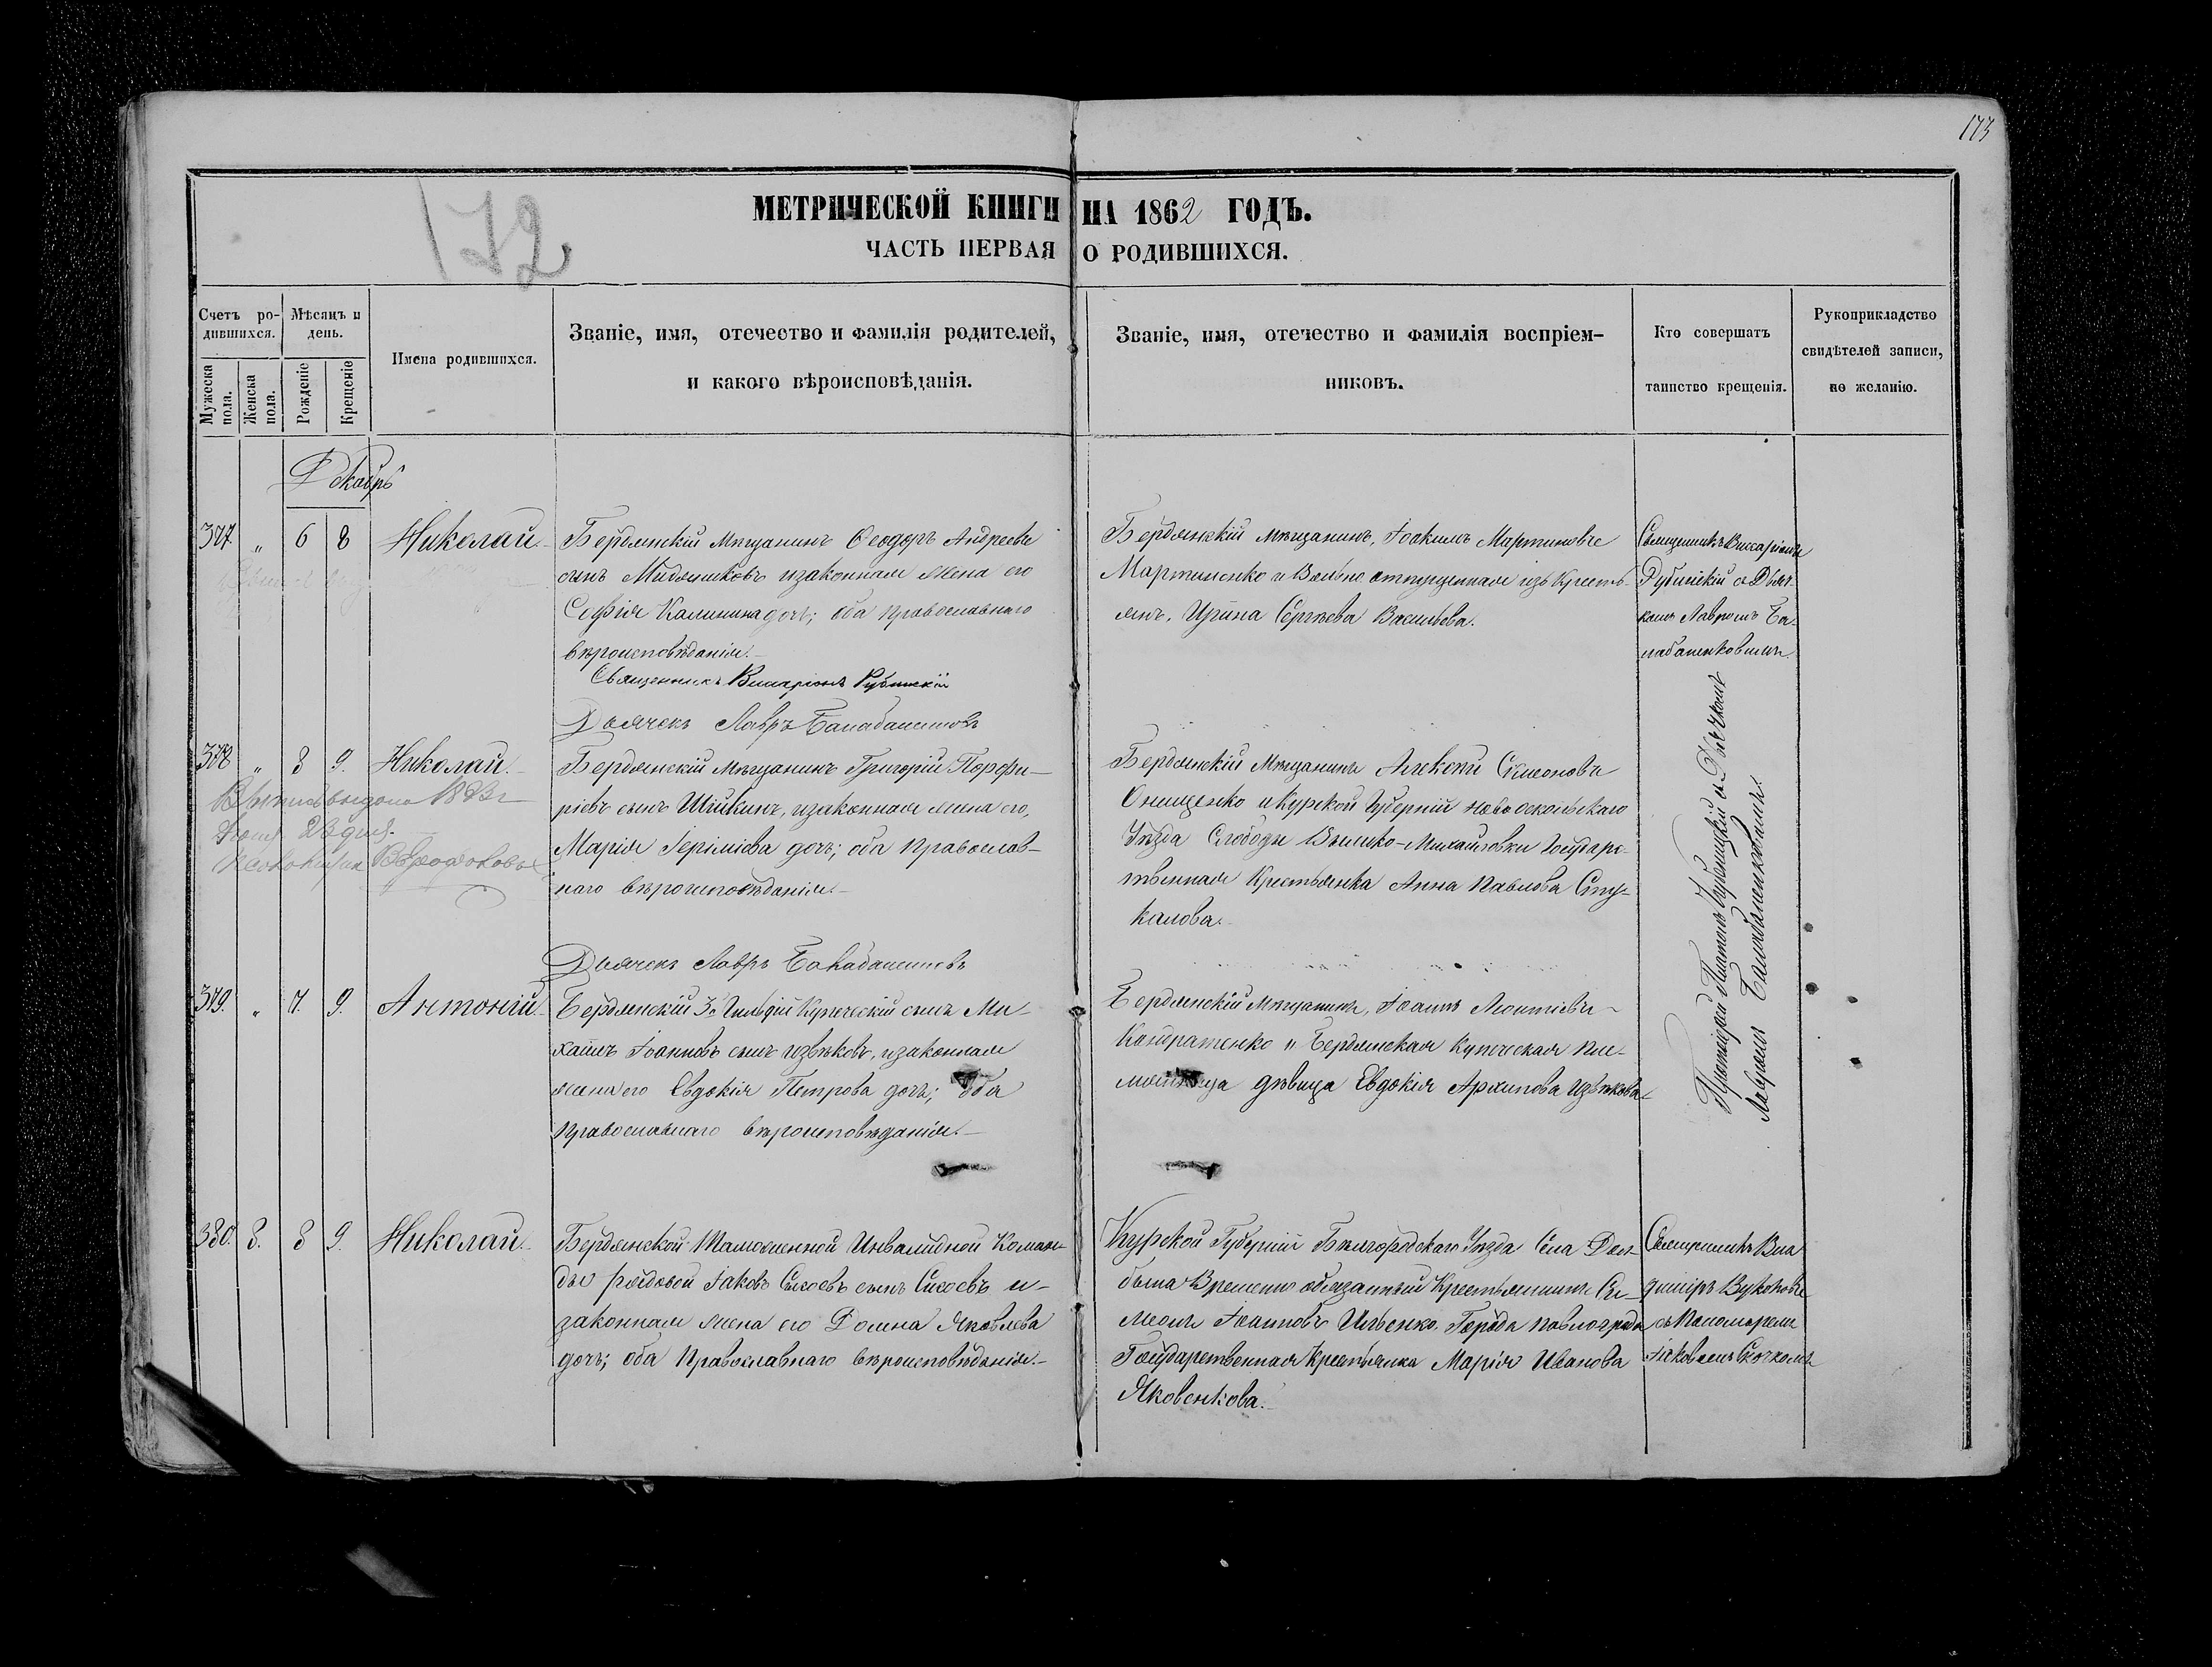 173
172
МЕТРИЧЕСКОЙ КНИГИ НА 1862 ГОДЪ.
ЧАСТЬ ПЕРВАЯ О РОДИВШИХСЯ.
Счетъ ро-
дившихся.
Мужеска пола.
Женска пола.
Мѣсяцъ и
день.
Рожденіе
Крещеніе
Имена родившихся.
Званіе, имя, отечество и фамилія родителей,
и какого вѣроисповѣданія.
Званіе, имя, отечество и фамилія воспріем-
никовъ.
Кто совершатъ
таинство крещенія.
Рукоприкладство
свидѣтелей записи,
по желанію.
Декабрь
377. „ 6 8 Николай.
Бердянскій мѣщанинъ Ѳеодоръ Андреевъ
сынъ Мидянниковъ изаконная жена его
Софія Калинина дочь; оба православнаго
вѣроисповѣданія.
Священникъ Виссаріонъ Рубинскій
Дьячекъ Лавръ
Бердянскій мѣщанинъ, Іоакимъ Мартиновъ
Мартиненко и Вольно отпущенная изъ Кресть-
янъ, Ирина Сергѣева Васильева.
Священникъ Виссаріонъ
Рубинскій съ Дьяч-
комъ Лавромъ Ба-
378 „ 8 9. Николай.
1893 г
Бердянскій мѣщанинъ Григорій Порфи-
ріевъ сынъ Шишкинъ, изаконная жена его,
Марія Іереміева дочь; оба Православ-
наго вѣроисповѣданія.
Дьячекъ Лавръ
Бердянскій Мѣщанинъ Алексѣй Симеоновъ
Онищенко и Курской Губерній Новооскольскаго
Уѣзда Слободы Михайловки Государс-
твенная Крестьянка Анна Павлова Сту-
калова.
Протоіерей съ Дьячкомъ
Лавромъ
379. „ 7. 9. Антоній.
Бердянскій 3й Гильдіи Купеческій сынъ Ми-
хаилъ Іоанновъ сынъ Извѣковъ, изаконная
жена его Евдокія Петрова дочь; оба
Православнаго вѣроисповѣданія.
Бердянскій Мѣщанинъ, Іоаннъ Леонтіевъ
Кондратенко и Бердянская Купеческая пле-
мянница дѣвица Евдокія Архипова Извѣкова.
380. 8. 8 9. Николай.
Бердянской Таможенной Инвалидной Коман-
ды рядовой Іаковъ Сысоевъ сынъ Сысоевъ и-
законная жена его Домна Яковлева
дочь; оба Православнаго вѣроисповѣданія.
Курской Губерній Бѣлгородскаго Уѣзда Села
Временно обязанный Крестьянинъ Си-
меонъ Іоанновъ Ильенко, Города Павлограда
Государственная Крестьянка Марія Иванова
Яковенкова.
Священникъ Вла-
диміръ
съ Пономаремъ
Іаковомъ